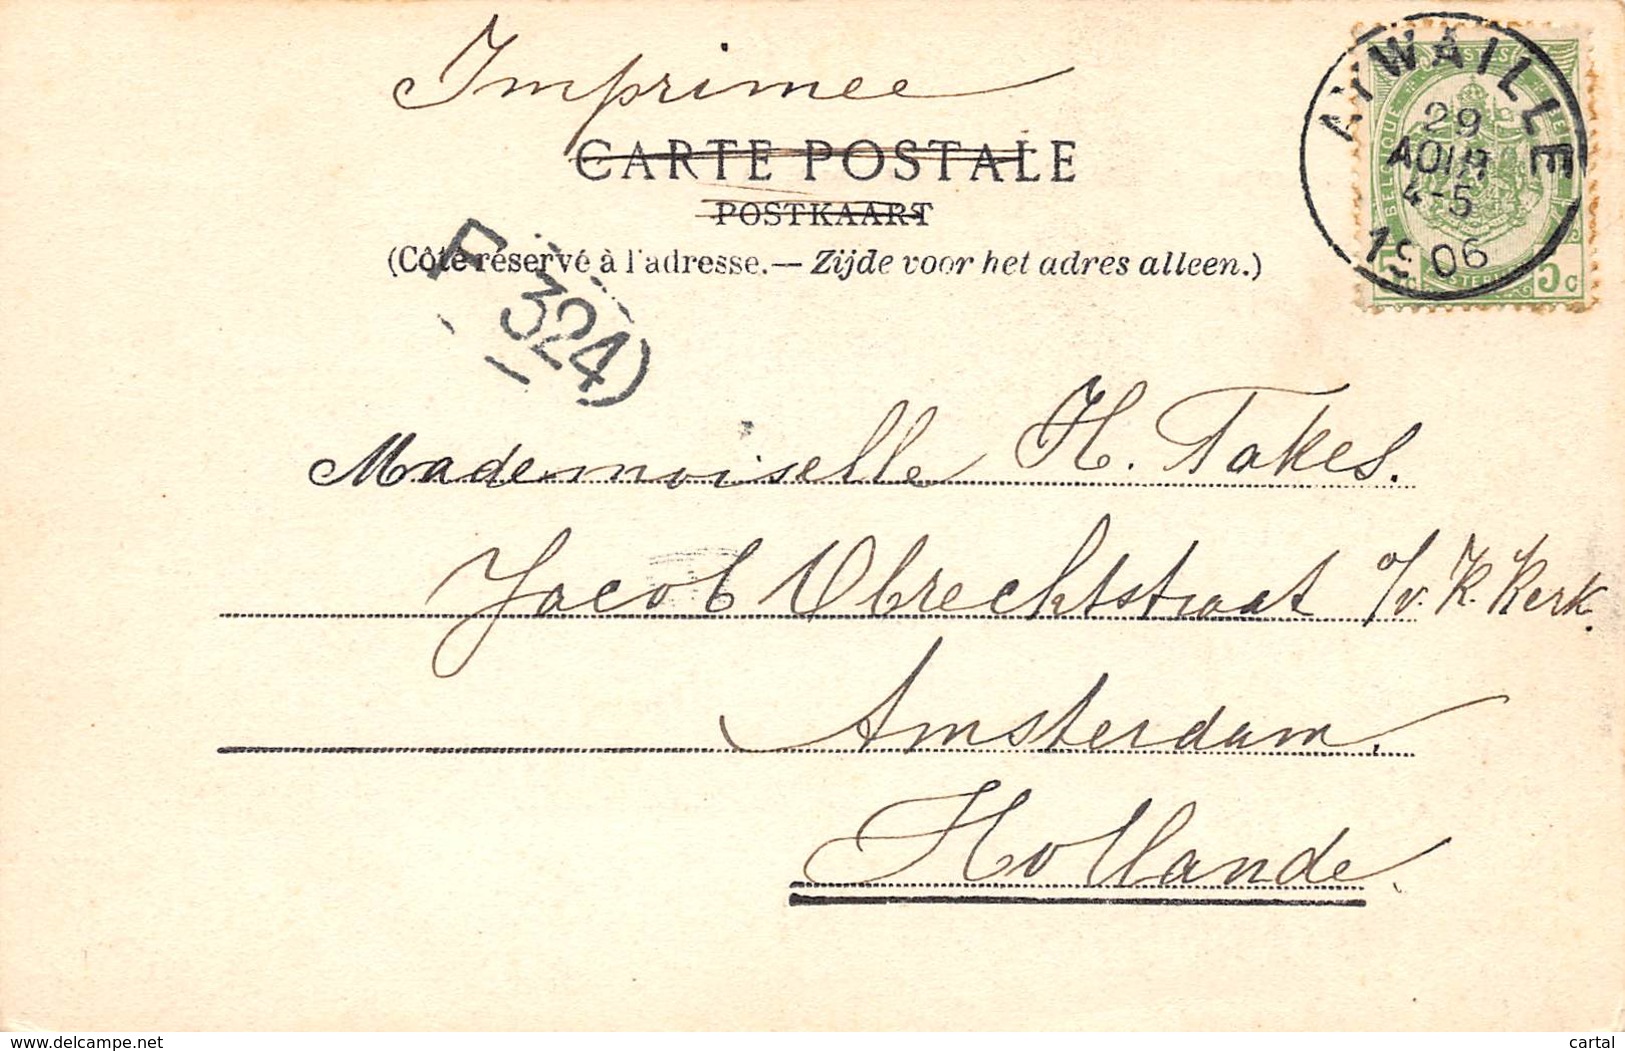 Imprimee
CARTE POSTALE
POSTKAART
(Côté réservé à l'adresse.— Zijde voor het adres alleen.)
AYWAILLE
29
AOUT
4-5
1906
BELGIQUE
5c 5c
324
Mademoiselle H. Takes.
Jacob Obrechtstraat o/v. K. Kerk.
Amsterdam.
Hollande.
delcampe.net
cartal